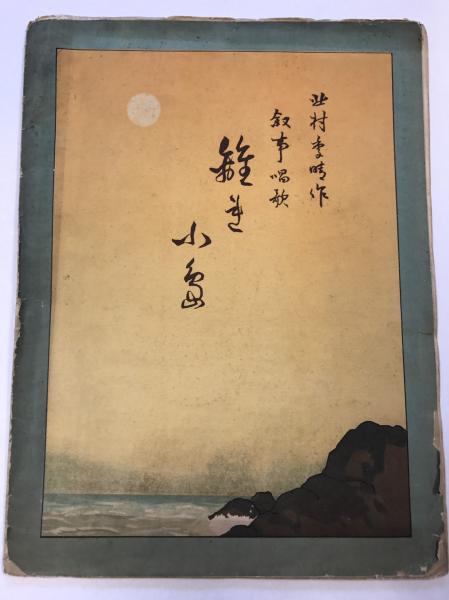 北村季晴作
叙事唱歌
離れ
小島